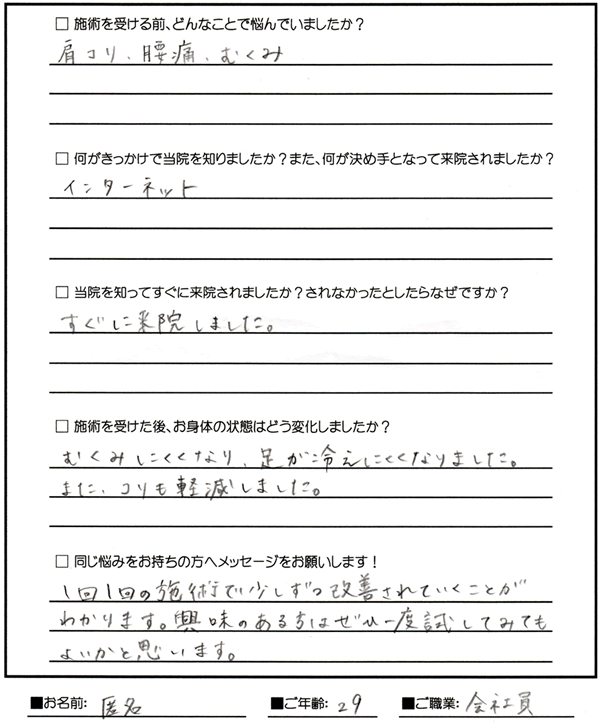 □ 施術を受ける前、どんなことで悩んでいましたか？
肩コリ、腰痛、むくみ
□ 何がきっかけで当院を知りましたか？また、何が決め手となって来院されましたか？
インターネット
□ 当院を知ってすぐに来院されましたか？されなかったとしたらなぜですか？
すぐに来院しました。
□ 施術を受けた後、お身体の状態はどう変化しましたか？
むくみにくくなり、足が冷えにくくなりました。
また、コリも軽減しました。
□ 同じ悩みをお持ちの方へメッセージをお願いします！
1回1回の施術で少しずつ改善されていくことが
わかります。興味のある方はぜひ一度試してみても
よいかと思います。
■お名前： 匿名 ■ご年齢： 29 ■ご職業： 会社員